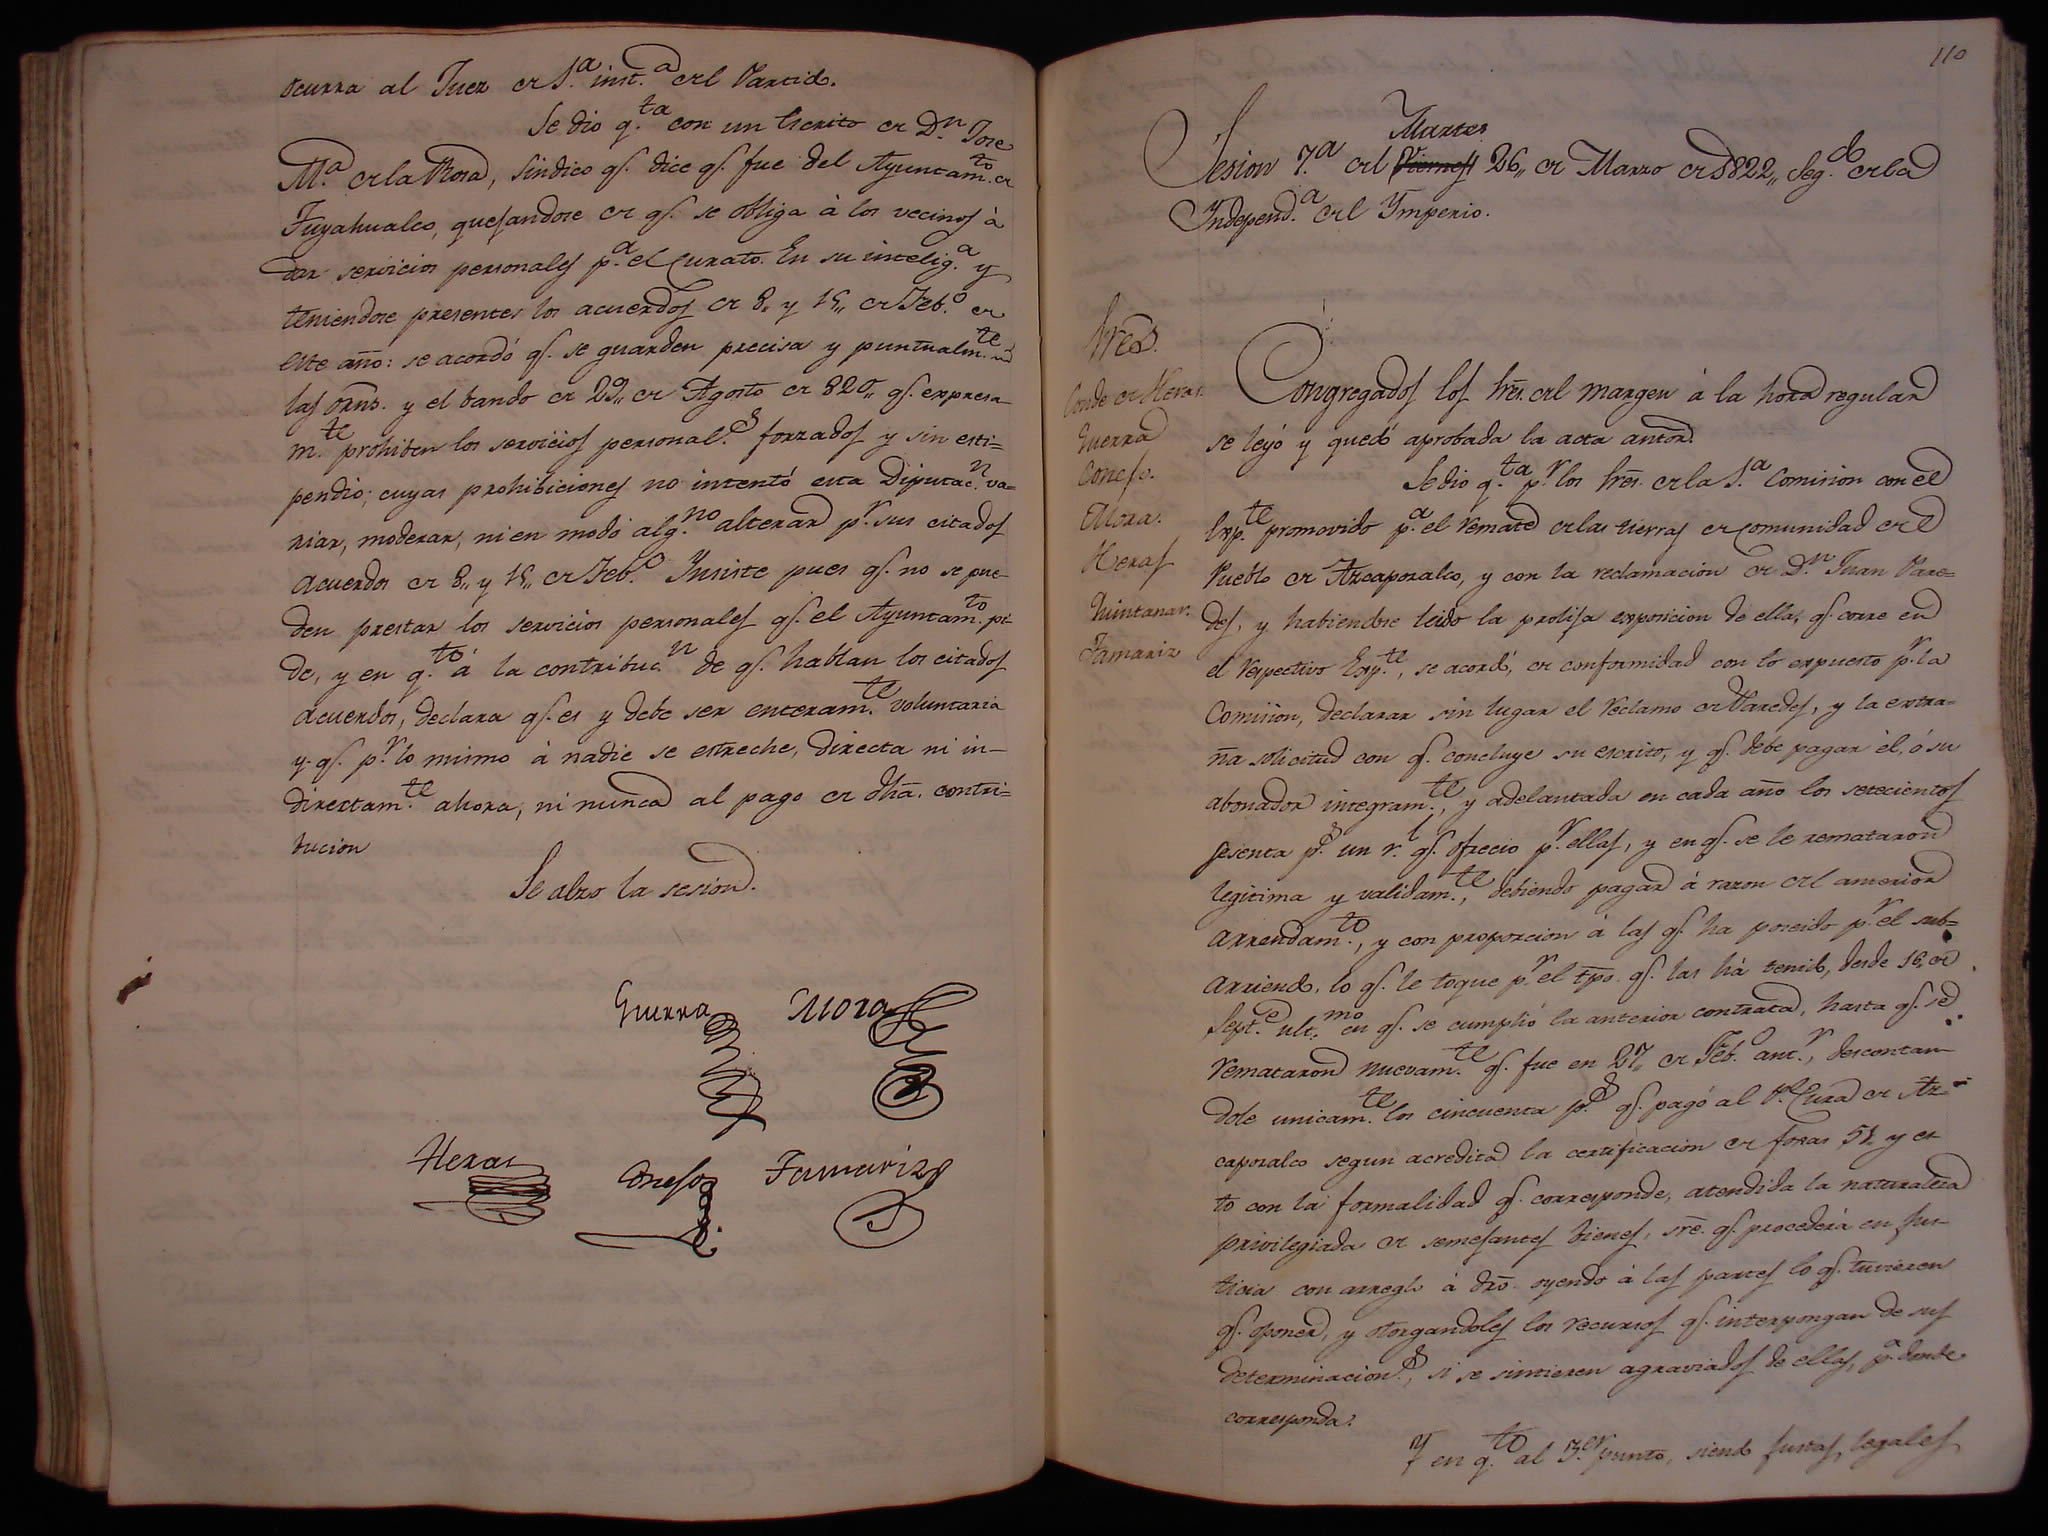 ocurra al Juez de 1.ª inst.ª del Partido.
Se dio q.ta con un Escrito de D.n Jose
M.ª de la Rosa, Sindico q.e dice q.e fue del Ayuntam.to de
Tuyahualco, quejandose de q.e se obliga à los vecinos à
dar servicios personales p.ª el Curato. En su intelig.ª y
teniendose presentes los acuerdos de 8,, y 15,, de Feb.o de
este año: se acordó q.e se guarden precisa y puntualm.te
las orns. y el bando de 29,, de Agosto de 820,, q.e expresa-
m.te prohiben los servicios personal.s forzados y sin esti-
pendio; cuyas prohibiciones no intentó esta Diputac.n va-
riar, moderar, ni en modo alg.no alterar p.r sus citados
acuerdos de 8,, y 15,, de Feb.o Insiste pues q.e no se pue-
den prestar los servicios personales q.e el Ayuntam.to pi-
de, y en q.to á la contribuc.n de q.e hablan los citados
acuerdos, declara q.e es y debe ser enteram.te voluntaria
y q.e p.r lo mismo à nadie se estreche, directa ni in-
directam.te ahora, ni nunca al pago de dha. contri-
bucion
Se alzo la sesion.
Guerra Mora
Heras Conejo Tamariz
110
Martes
Sesion 7.ª del Viernes 26,, de Marzo de 1822,, Seg.do de la
Independ.ª del Ymperio.
Sres.
Conde de Heras.
Guerra
Conejo.
Mora.
Heras
Quintanar.
Tamariz
Congregados los Sres. del margen à la hora regular
se leyó y quedó aprobada la acta antor.
Se dio q.ta p.r los Sres. de la 1.ª Comision con el
Exp.te promovido p.ª el remate de las tierras de comunidad del
Pueblo de Azcapozalco, y con la reclamacion de D.n Juan Pare-
des, y habiendose leido la prolija exposicion de ella, q.e corre en
el respectivo Exp.te, se acordó, de conformidad con lo expuesto p.r la
Comision, declarar sin lugar el reclamo de Paredes, y la extra-
ña solicitud con q.e concluye su escrito, y q.e debe pagar èl, ó su
abonador integram.te, y adelantada en cada año los setecientos
sesenta p.s un r.l q.e ofrecio p.r ellas, y en q.e se le remataron
legitima y validam.te, debiendo pagar á razon del anterior
arrendam.to, y con proporcion á las q.e ha poseido p.r el sub-
arriendo, lo q.e le toque p.r el tpo. q.e las há tenido, desde 16,, de
Sept.e ult.mo en q.e se cumplió la anterior contrata, hasta q.e se
remataron nuevam.te q.e fue en 27,, de Feb.o ant.r, descontan-
dole unicam.te los cincuenta p.s q.e pagó al P. Cura de Az-
capozalco segun acredita la certificacion de foxas 51 y es-
to con la formalidad q.e corresponde, atendida la naturaleza
privilegiada de semejantes bienes, sre. q.e procederá en jus-
ticia con arreglo á dro. oyendo à las partes lo q.e tuvieren
q.e oponer, y otorgandoles los recursos q.e interpongan de sus
determinacion.s, si se sintieren agraviados de ellas, p.ª donde
corresponda.
Y en q.to al 3.er punto, siendo justas, legales